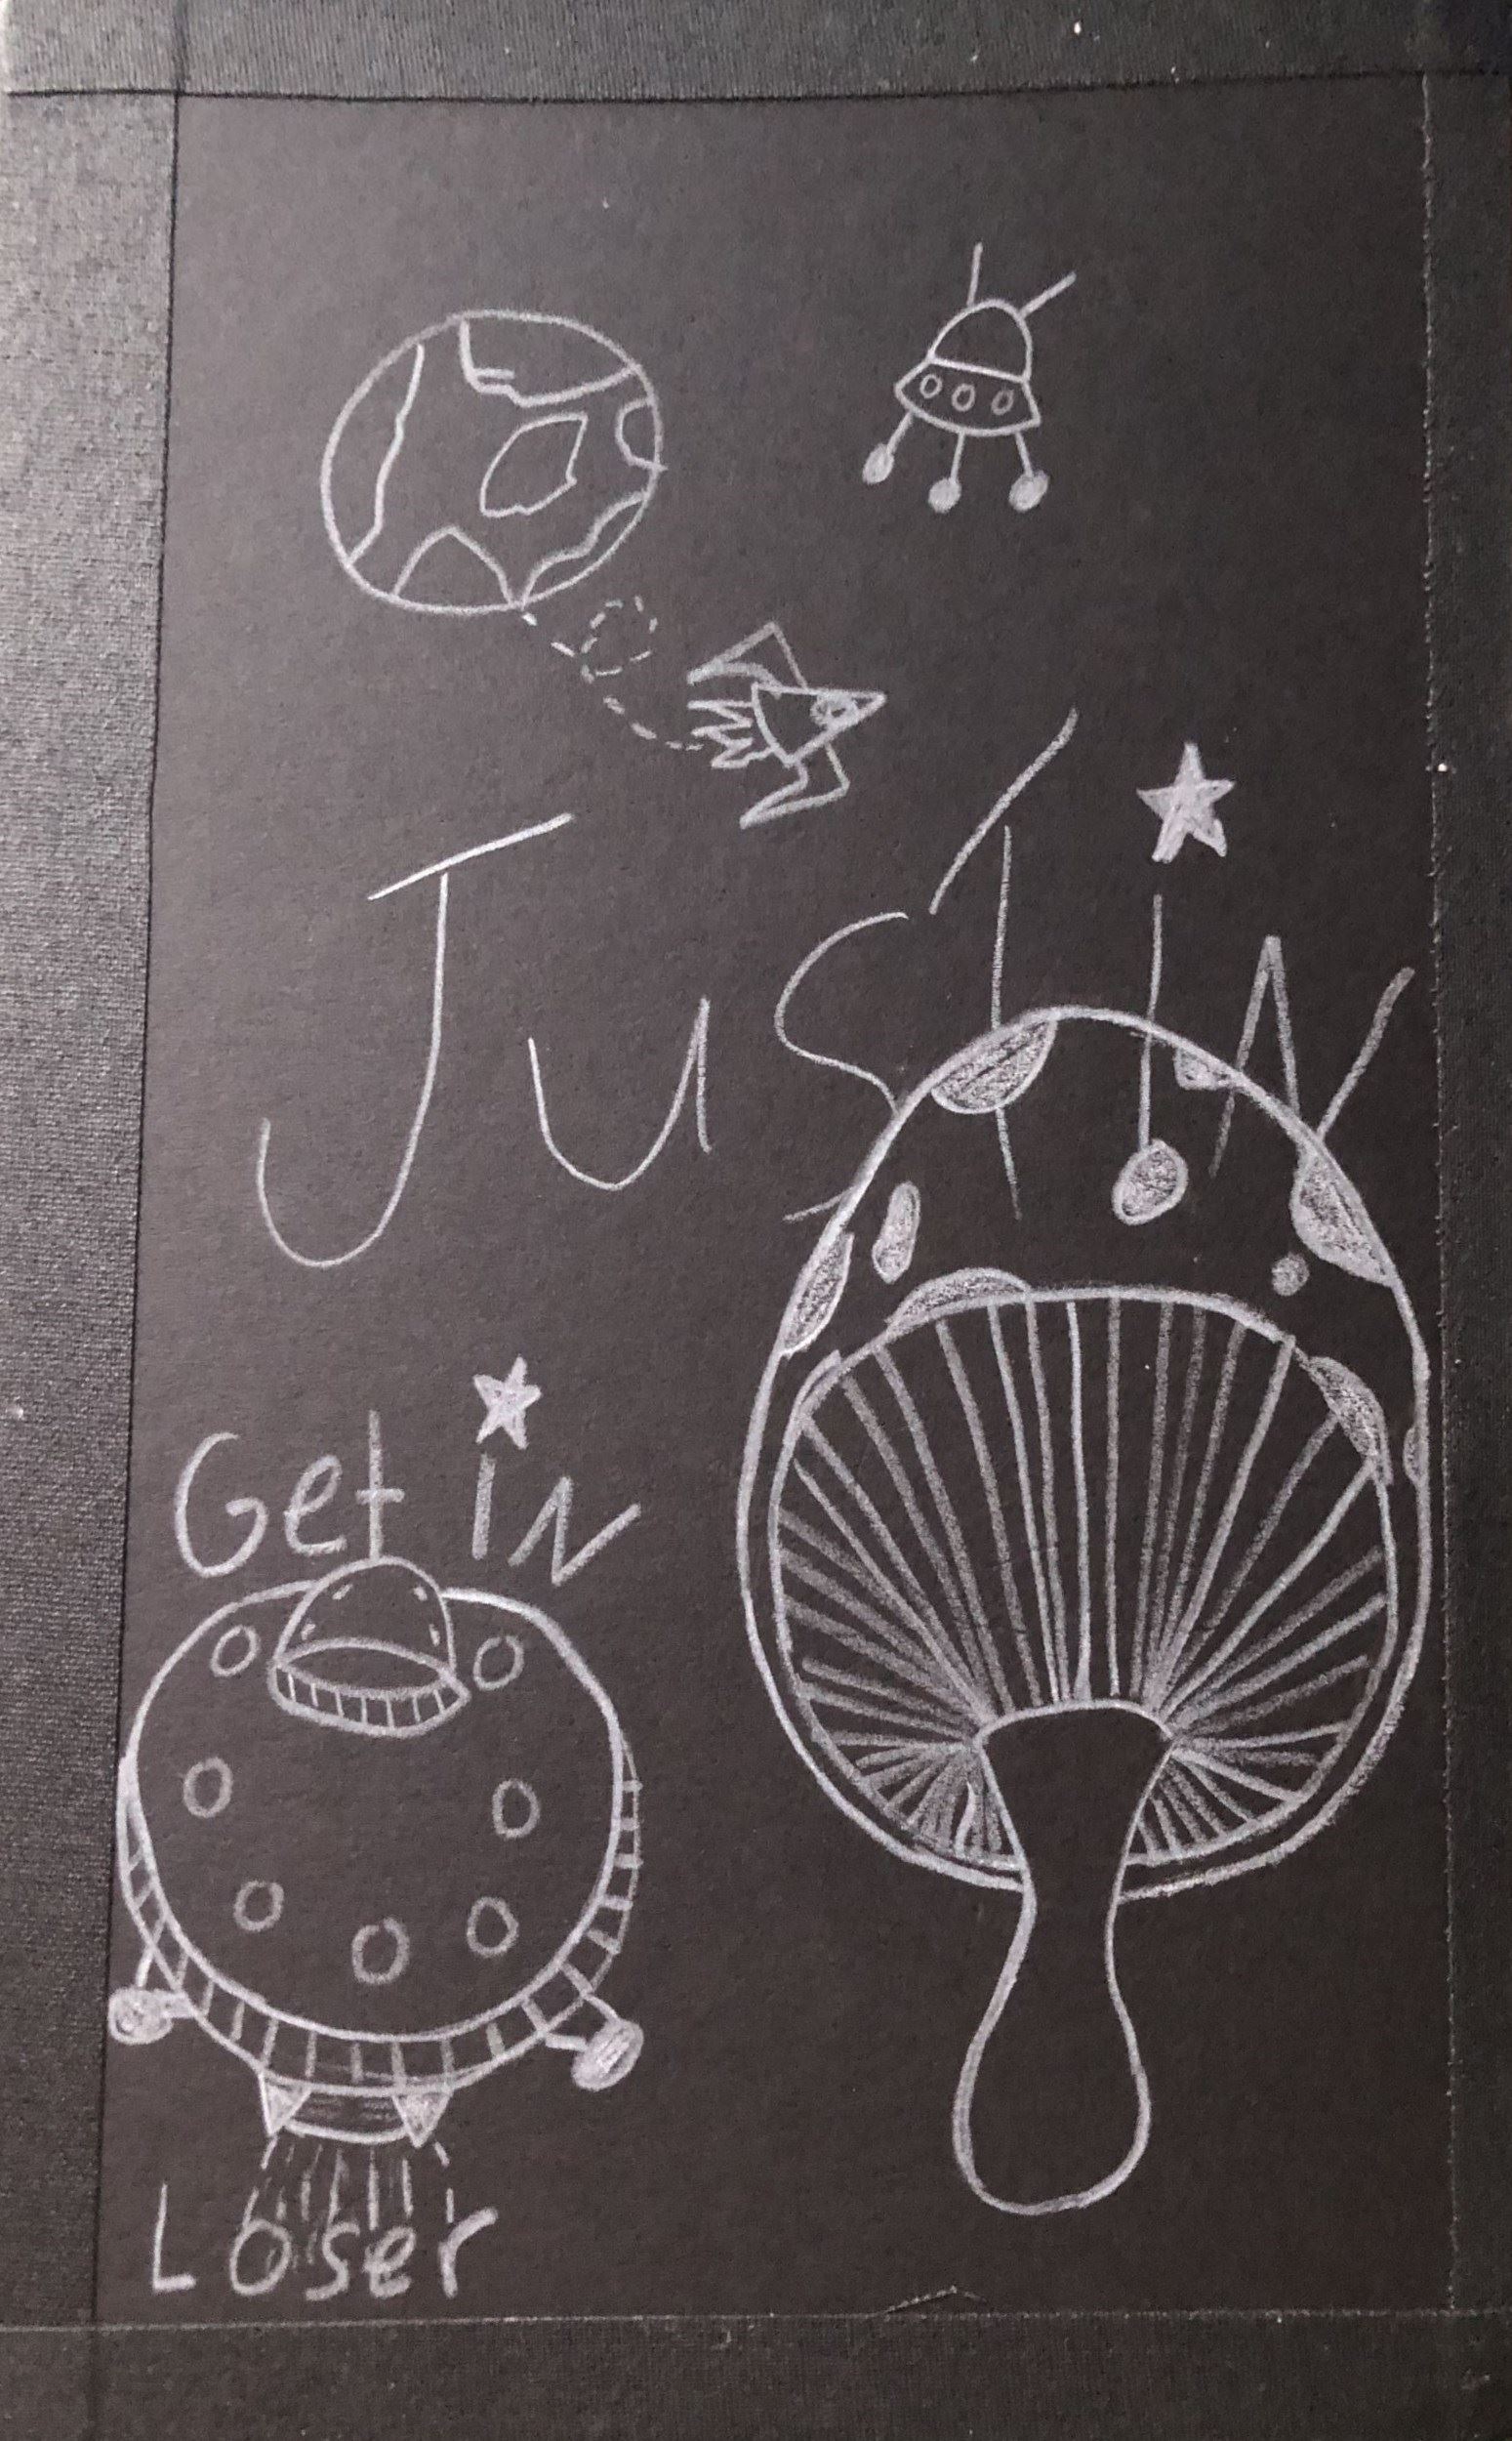 JusTiN
Get iN
Loser